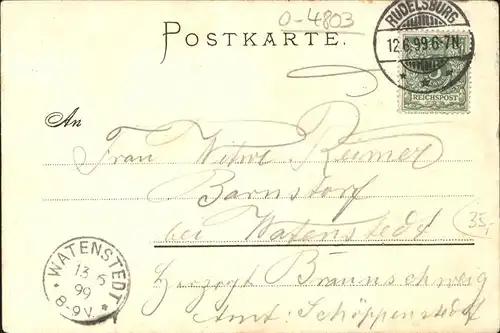 0-4803
POSTKARTE.
RUDELSBURG
12.6.99.6-7N.
5
REICHSPOST
An
Frau Witwe Reimer
Barnstorf
bei Watenstedt
35,-
Herzogt Braunschweig
Amt: Schöppenstedt
WATENSTEDT
13 6
99
8-9V.